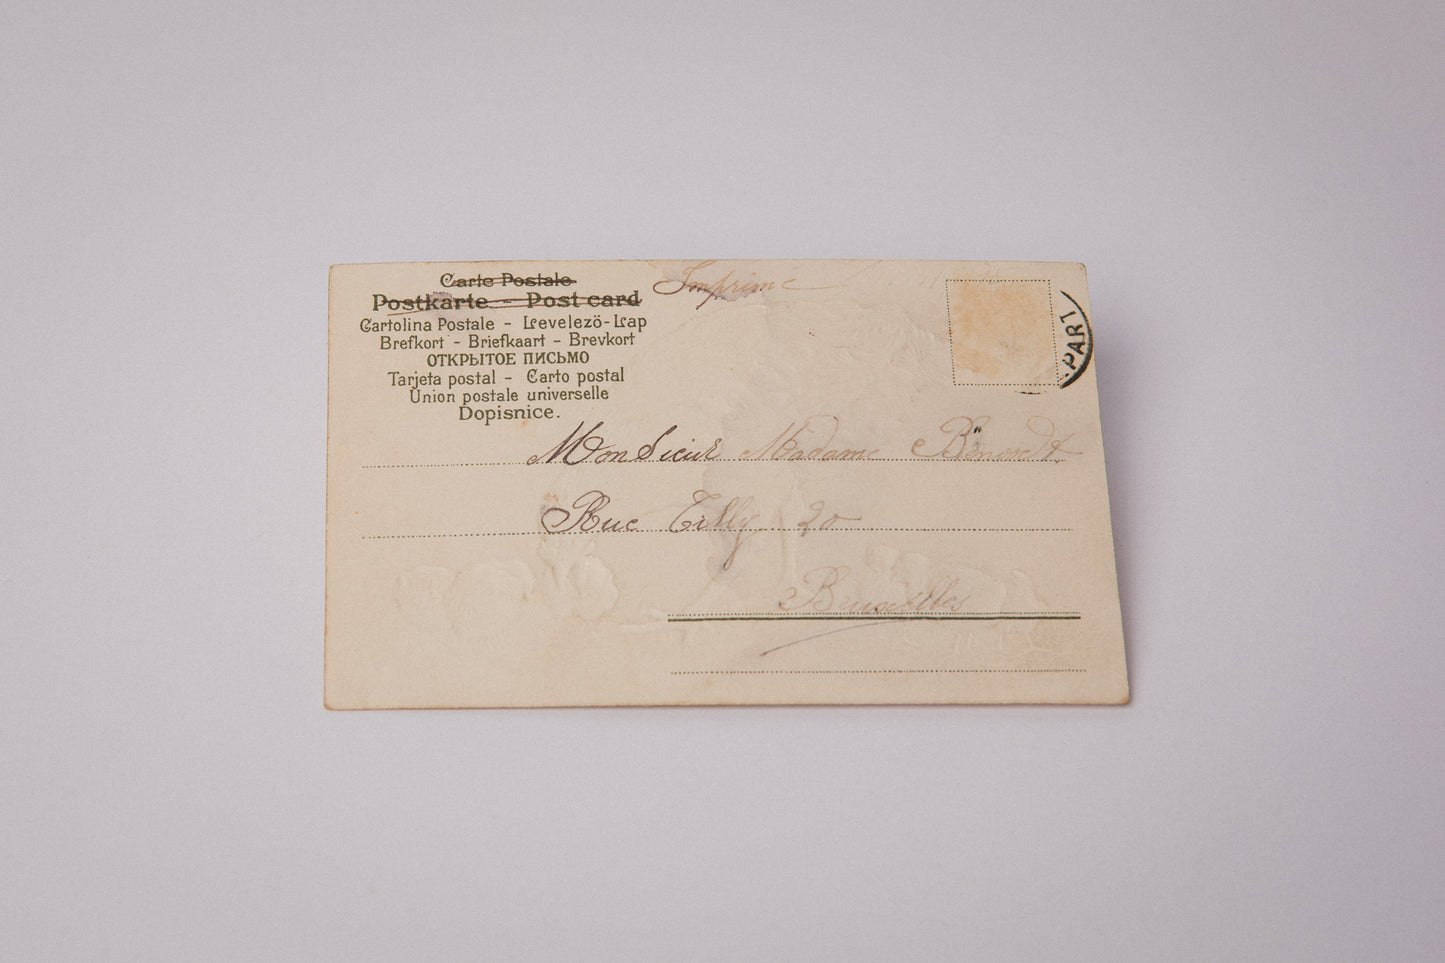 Carte Postale
Postkarte - Post card
Cartolina Postale - Levelezö-Lap
Brefkort - Briefkaart - Brevkort
ОТКРЫТОЕ ПИСЬМО
Tarjeta postal - Carto postal
Union postale universelle
Dopisnice.
Imprimé
PART
Monsieur Madame
Rue Tilly 20
Bruxelles